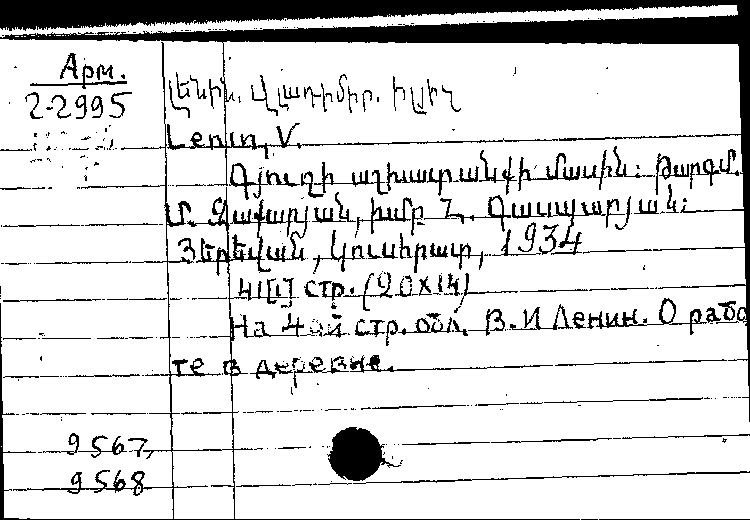 Арм.
2-2995
Լենին. Վլադիմիր. Իլիչ
Lenin, V.
Գյուղի աշխատանքի մասին: Թարգմ.
Մ. Զաքարյան, խմբ Հ. Գասպարյան:
Յերևան, Կուսհրատ, 1934
41[1] стр. (20x14)
На 4ой стр. обл. В.И Ленин. О рабо
те в деревне.
9567,
9568